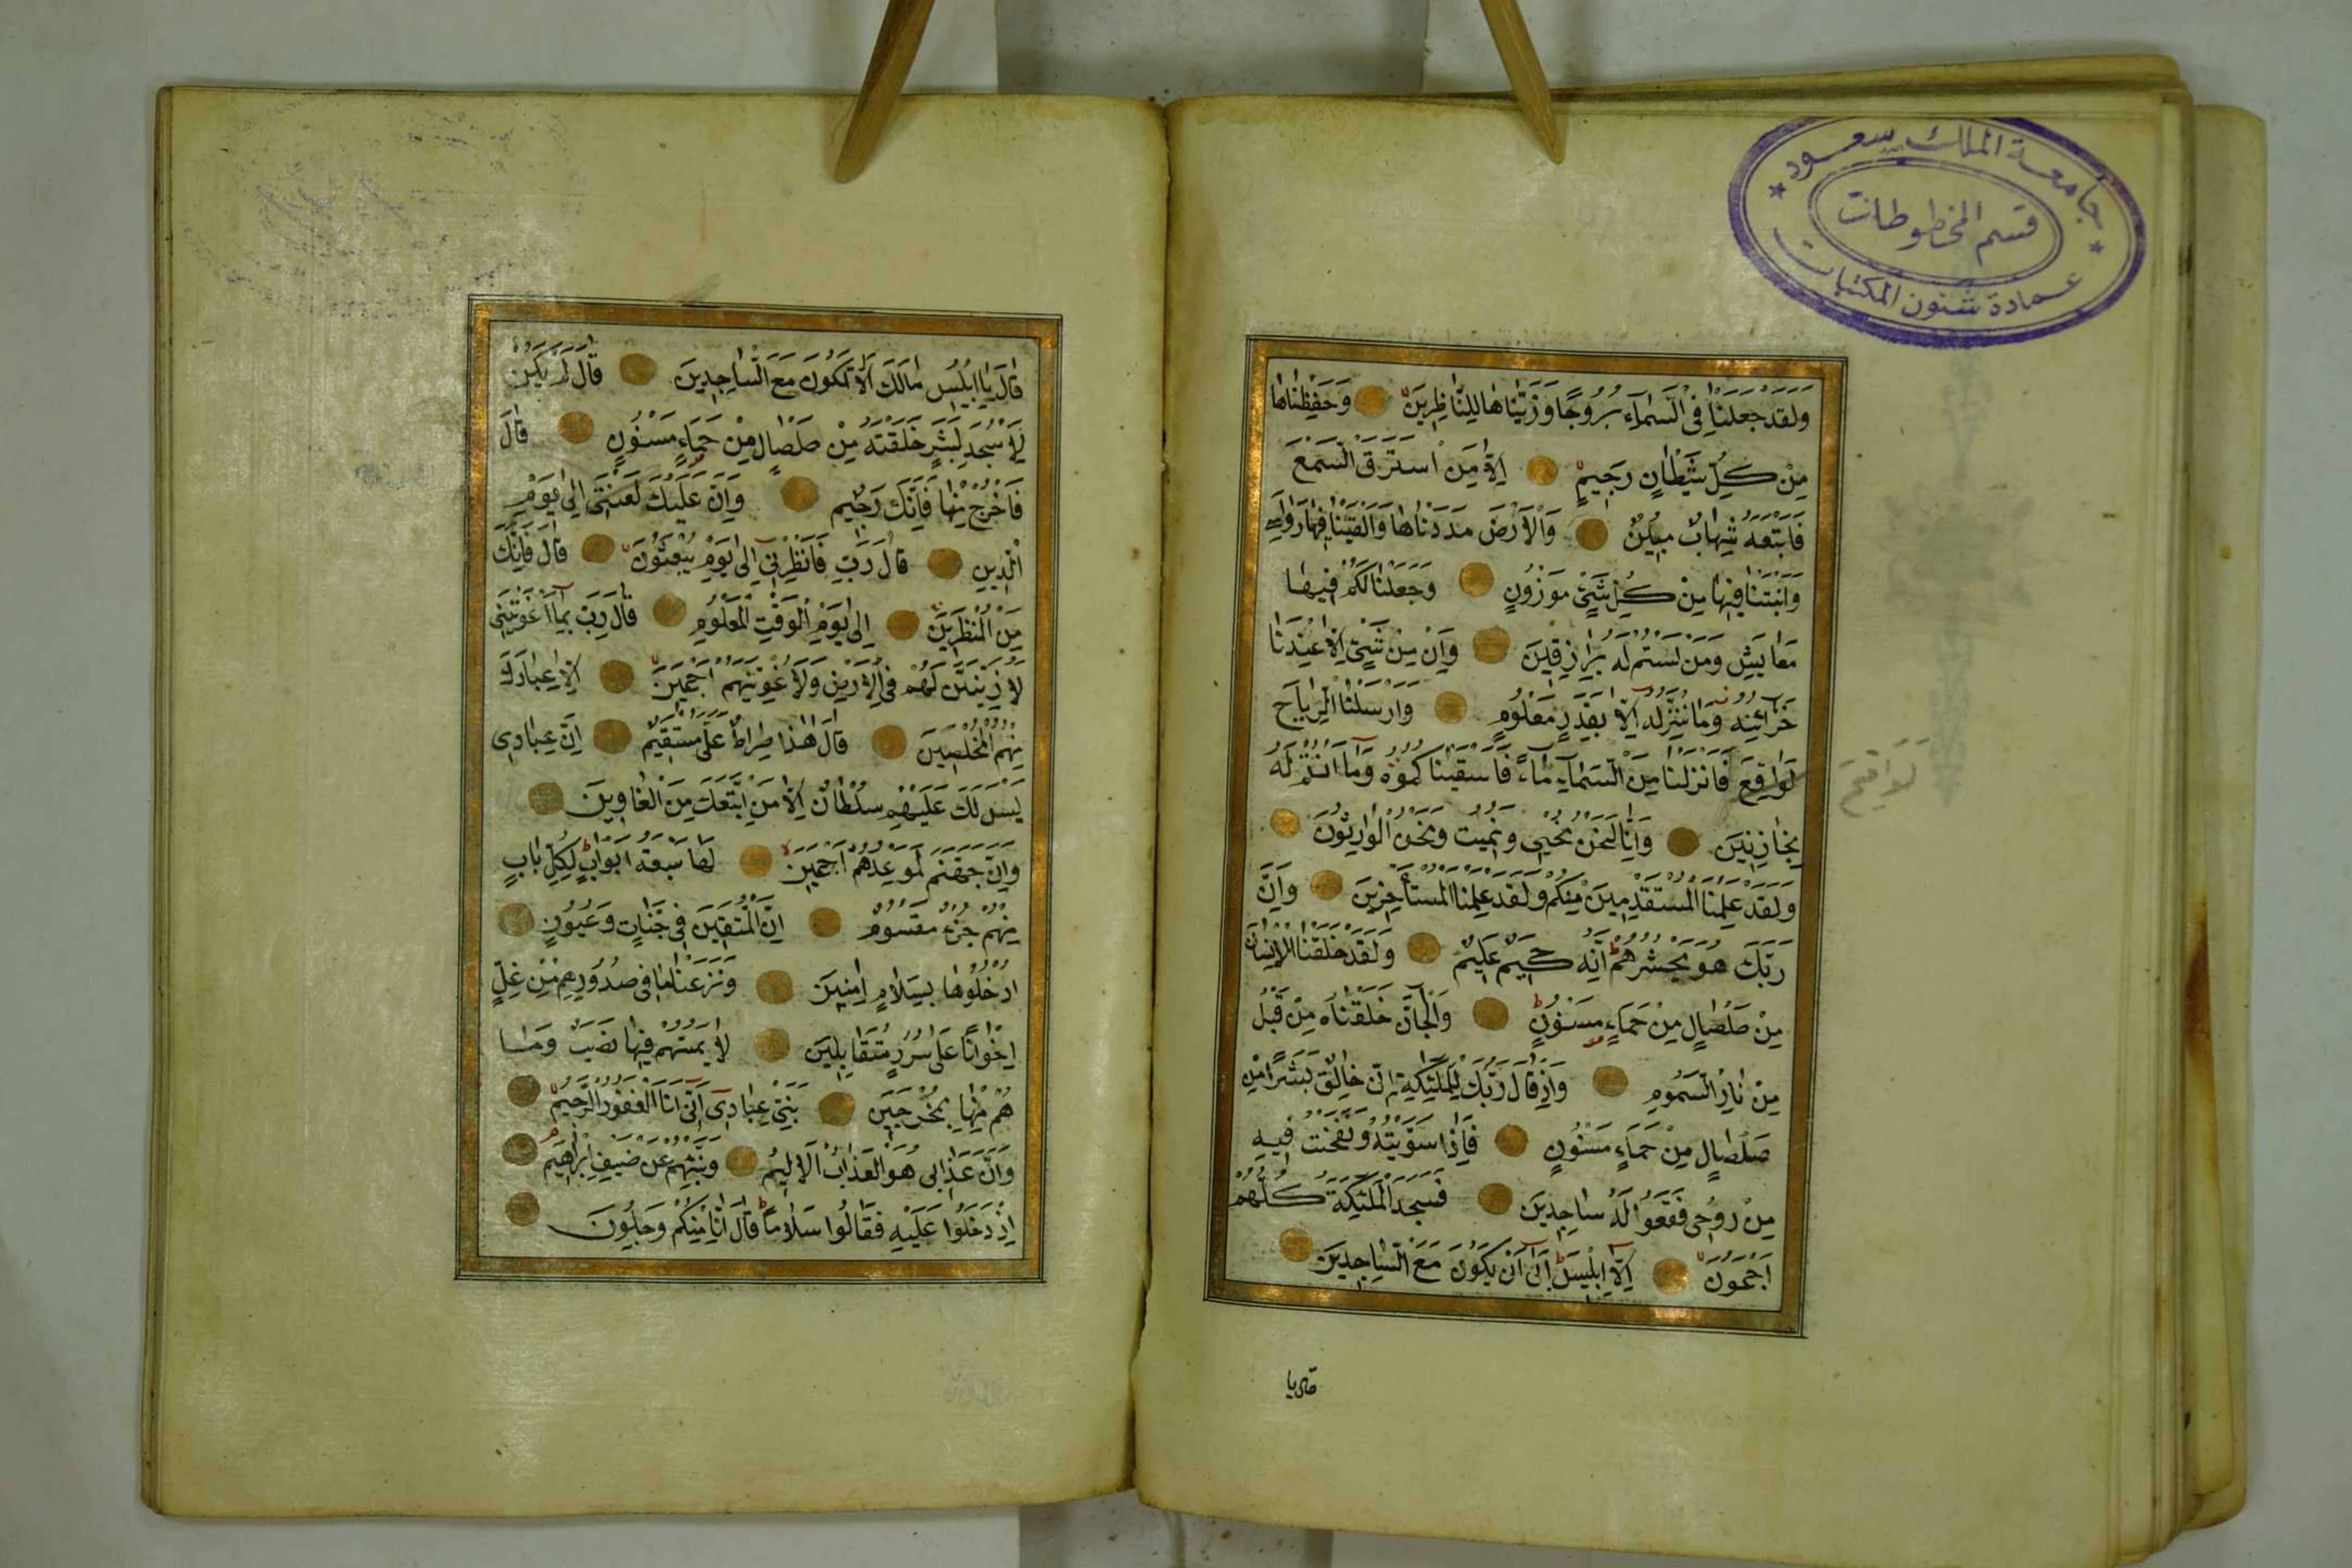 جامعة الملك سعود
قسم المخطوطات
عمادة شئون المكتبات
وَلَقَدْ جَعَلْنَا فِى السَّمَاءِ بُرُوجًا وَزَيَّنَّاهَا لِلنَّاظِرِينَ وَحَفِظْنَاهَا
مِنْ كُلِّ شَيْطَانٍ رَجِيمٍ اِلَّا مَنِ اسْتَرَقَ السَّمْعَ
فَاَتْبَعَهُ شِهَابٌ مُبِينٌ وَالْاَرْضَ مَدَدْنَاهَا وَاَلْقَيْنَا فِيهَا رَوَاسِىَ
وَاَنْبَتْنَا فِيهَا مِنْ كُلِّ شَىْءٍ مَوْزُونٍ وَجَعَلْنَا لَكُمْ فِيهَا
مَعَايِشَ وَمَنْ لَسْتُمْ لَهُ بِرَازِقِينَ وَاِنْ مِنْ شَىْءٍ اِلَّا عِنْدَنَا
خَزَائِنُهُ وَمَا نُنَزِّلُهُ اِلَّا بِقَدَرٍ مَعْلُومٍ وَاَرْسَلْنَا الرِّيَاحَ
لَوَاقِحَ فَاَنْزَلْنَا مِنَ السَّمَاءِ مَاءً فَاَسْقَيْنَاكُمُوهُ وَمَا اَنْتُمْ لَهُ
لَوَاقِحَ
بِخَازِنِينَ وَاِنَّا لَنَحْنُ نُحْيِى وَنُمِيتُ وَنَحْنُ الْوَارِثُونَ
وَلَقَدْ عَلِمْنَا الْمُسْتَقْدِمِينَ مِنْكُمْ وَلَقَدْ عَلِمْنَا الْمُسْتَأْخِرِينَ وَاِنَّ
رَبَّكَ هُوَ يَحْشُرُهُمْ اِنَّهُ حَكِيمٌ عَلِيمٌ وَلَقَدْ خَلَقْنَا الْاِنْسَانَ
مِنْ صَلْصَالٍ مِنْ حَمَاءٍ مَسْنُونٍ وَالْجَانَّ خَلَقْنَاهُ مِنْ قَبْلُ
مِنْ نَارِ السَّمُومِ وَاِذْ قَالَ رَبُّكَ لِلْمَلٰئِكَةِ اِنِّى خَالِقٌ بَشَرًا مِنْ
صَلْصَالٍ مِنْ حَمَاءٍ مَسْنُونٍ فَاِذَا سَوَّيْتُهُ وَنَفَخْتُ فِيهِ
مِنْ رُوحِى فَقَعُوا لَهُ سَاجِدِينَ فَسَجَدَ الْمَلٰئِكَةُ كُلُّهُمْ
اَجْمَعُونَ اِلَّا اِبْلِيسَ اَبٰى اَنْ يَكُونَ مَعَ السَّاجِدِينَ
قال يا
قَالَ يَا اِبْلِيسُ مَالَكَ اَلَّا تَكُونَ مَعَ السَّاجِدِينَ قَالَ لَمْ اَكُنْ
لِاَسْجُدَ لِبَشَرٍ خَلَقْتَهُ مِنْ صَلْصَالٍ مِنْ حَمَاءٍ مَسْنُونٍ قَالَ
فَاخْرُجْ مِنْهَا فَاِنَّكَ رَجِيمٌ وَاِنَّ عَلَيْكَ لَعْنَتِى اِلٰى يَوْمِ
الدِّينِ قَالَ رَبِّ فَاَنْظِرْنِى اِلٰى يَوْمِ يُبْعَثُونَ قَالَ فَاِنَّكَ
مِنَ الْمُنْظَرِينَ اِلٰى يَوْمِ الْوَقْتِ الْمَعْلُومِ قَالَ رَبِّ بِمَا اَغْوَيْتَنِى
لَاُزَيِّنَنَّ لَهُمْ فِى الْاَرْضِ وَلَاُغْوِيَنَّهُمْ اَجْمَعِينَ اِلَّا عِبَادَكَ
مِنْهُمُ الْمُخْلَصِينَ قَالَ هٰذَا صِرَاطٌ عَلَىَّ مُسْتَقِيمٌ اِنَّ عِبَادِى
لَيْسَ لَكَ عَلَيْهِمْ سُلْطَانٌ اِلَّا مَنِ اتَّبَعَكَ مِنَ الْغَاوِينَ
وَاِنَّ جَهَنَّمَ لَمَوْعِدُهُمْ اَجْمَعِينَ لَهَا سَبْعَةُ اَبْوَابٍ لِكُلِّ بَابٍ
مِنْهُمْ جُزْءٌ مَقْسُومٌ اِنَّ الْمُتَّقِينَ فِى جَنَّاتٍ وَعُيُونٍ
اُدْخُلُوهَا بِسَلَامٍ اٰمِنِينَ وَنَزَعْنَا مَا فِى صُدُورِهِمْ مِنْ غِلٍّ
اِخْوَانًا عَلٰى سُرُرٍ مُتَقَابِلِينَ لَا يَمَسُّهُمْ فِيهَا نَصَبٌ وَمَا
هُمْ مِنْهَا بِمُخْرَجِينَ نَبِّئْ عِبَادِى اَنِّى اَنَا الْغَفُورُ الرَّحِيمُ
وَاَنَّ عَذَابِى هُوَ الْعَذَابُ الْاَلِيمُ وَنَبِّئْهُمْ عَنْ ضَيْفِ اِبْرٰهِيمَ
اِذْ دَخَلُوا عَلَيْهِ فَقَالُوا سَلَامًا قَالَ اِنَّا مِنْكُمْ وَجِلُونَ